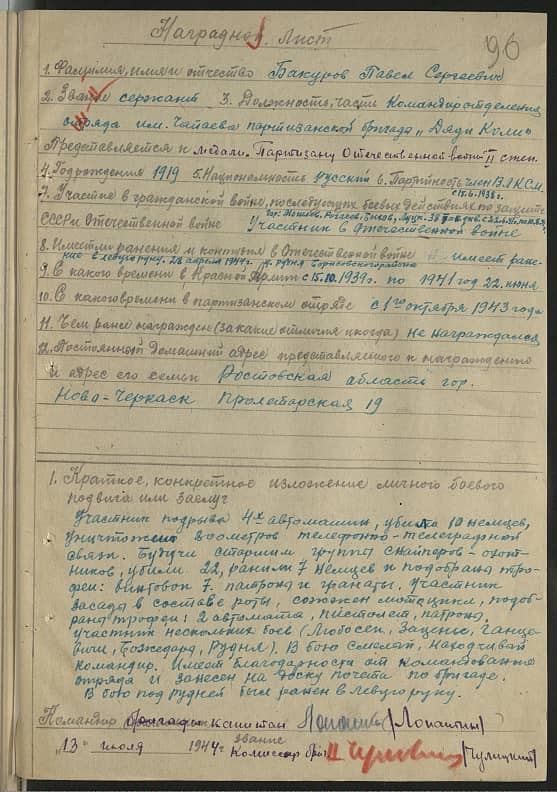 96
Наградной лист
1. Фамилия, имя и отчество Бакуров Павел Сергеевич
2. Звание сержант 3. Должность, часть Командир отделения
отряда им. Чапаева партизанской бригады "Дяди Коли"
Представляется к медали "Партизану Отечественной войны" II степ.
4. Год рождения 1919 5. Национальность русский 6. Партийность член ВЛКСМ
с 15.6.1938 г.
7. Участие в гражданской войне, последующих боевых действиях по защите
СССР и Отечественной войне Участник в отечественной войне
8. Имеет ли ранения и контузии в Отечественной войне имеет ране-
ние в левую руку. 28 апреля 1944 г. д. Рудня
9. С какого времени в Красной Армии с 15.10.1939г. по 1941 год 22 июня
10. С какого времени в партизанском отряде с 1го октября 1943 года
11. Чем ранее награжден (за какие отличия и когда) не награждался
12. Постоянный домашний адрес представляемого к награждению
и адрес его семьи Ростовская область гор.
Ново-Черкаск Пролетарская 19
1. Краткое, конкретное изложение личного боевого
подвига или заслуг
Участник подрыва 4х автомашин, убито 10 немцев,
уничтожил 200 метров телефонно-телеграфной
связи. Будучи старшим группы снайперов-охот-
ников, убили 22, ранили 7 немцев и подобрали тро-
феи: винтовок 7, патроны и гранаты. Участник
засады в составе роты, сожжен мотоцикл, подоб-
раны трофеи: 2 автомата, пистолет, патроны.
Участник нескольких боев (Любосен, Заценье, Ганце-
вичи, Рудня). В бою смелый, находчивый
командир. Имеет благодарности от командования
отряда и занесен на доску почета по бригаде.
В бою под рудней был ранен в левую руку.
Командир бригады капитан (Лопатин)
звание
"13" июля 1944г. Комиссар бриг. (Чулицкий)